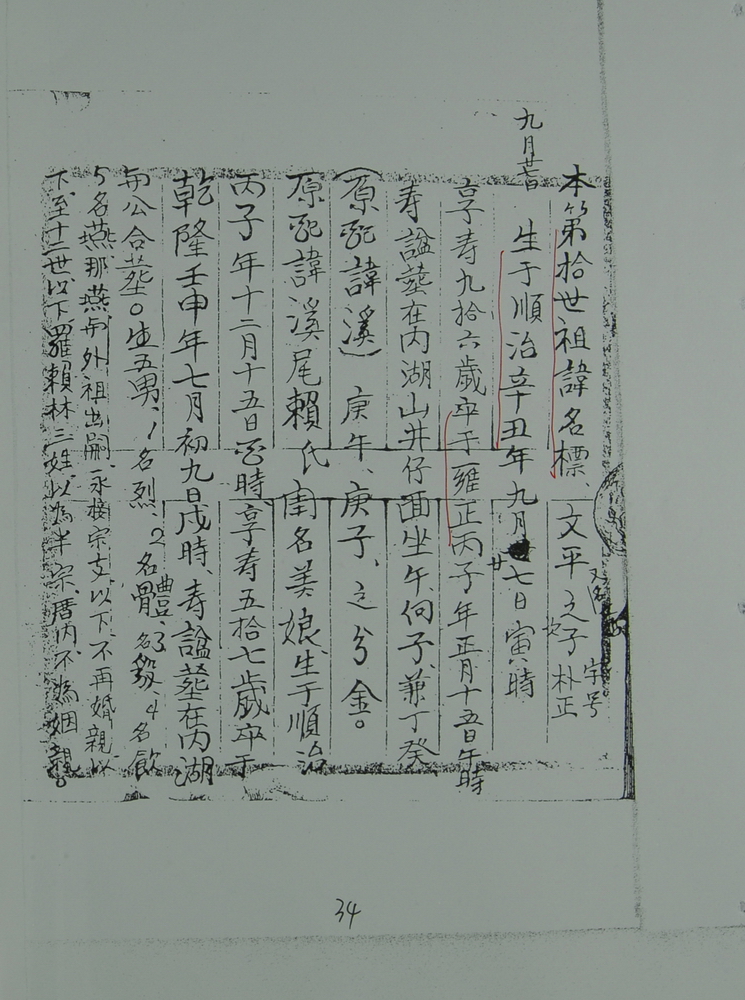 九月廿七日
本第拾世祖諱名標 文平之子朴正
又名 字号
生于順治辛丑年九月廿七日寅時
享寿九拾六歲卒于雍正丙子年正月十五日午時
寿諡塟在内湖山井仔面坐午向子兼丁癸
(原配諱溪)庚午、庚子、之分金。
原配諱溪尾賴氏閨名美娘、生于順治
丙子年十二月十五日 時享寿五拾七歲卒于
乾隆壬申年七月初九日戌時、寿諡塟在内湖
与公合塟。生五男、1名烈 2名體、3名毅、4名飲
5名燕、那燕与外祖出嗣、永接宗支以下、不再婚親以
下至十二世以下羅賴林三姓以為半宗、曆内不為姻親。
34